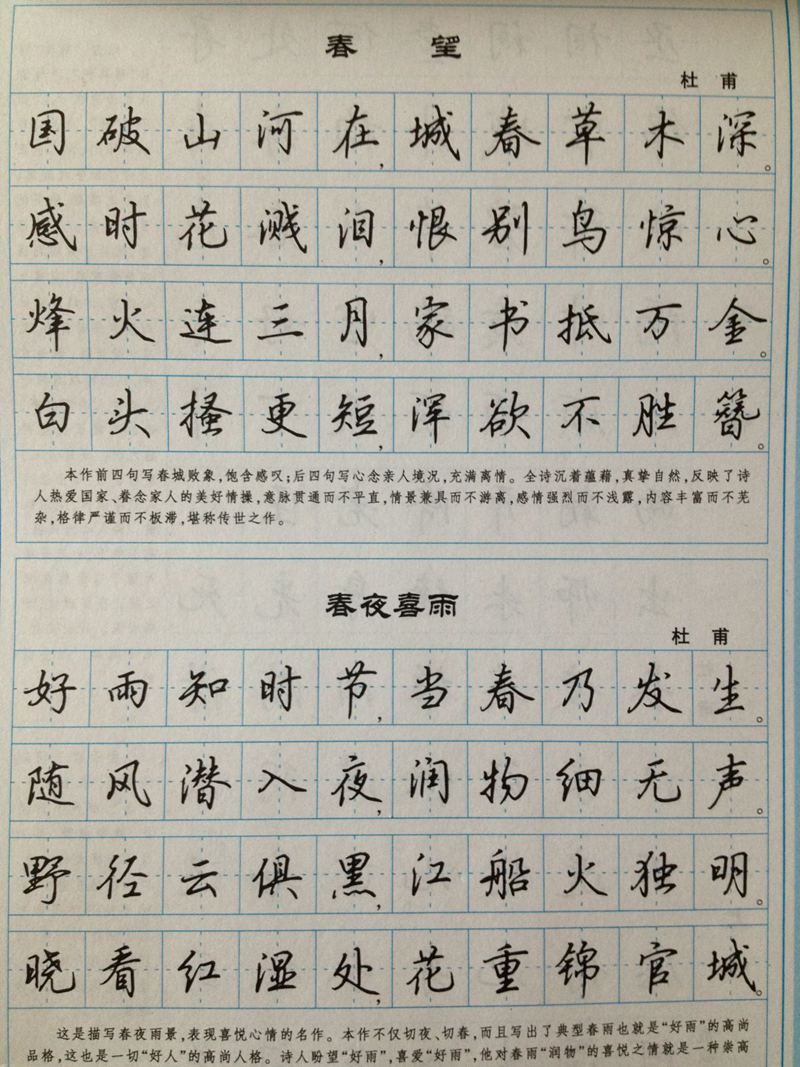 春 望
杜 甫
国破山河在,城春草木深。
感时花溅泪,恨别鸟惊心。
烽火连三月,家书抵万金。
白头搔更短,浑欲不胜簪。
本作前四句写春城败象,饱含感叹;后四句写心念亲人境况,充满离情。全诗沉着蕴藉,真挚自然,反映了诗
人热爱国家、眷念家人的美好情操,意脉贯通而不平直,情景兼具而不游离,感情强烈而不浅露,内容丰富而不芜
杂,格律严谨而不板滞,堪称传世之作。
春夜喜雨
杜 甫
好雨知时节,当春乃发生。
随风潜入夜,润物细无声。
野径云俱黑,江船火独明。
晓看红湿处,花重锦官城。
这是描写春夜雨景,表现喜悦心情的名作。本作不仅切夜、切春,而且写出了典型春雨也就是“好雨”的高尚
品格,这也是一切“好人”的高尚人格。诗人盼望“好雨”,喜爱“好雨”,他对春雨“润物”的喜悦之情就是一种崇高